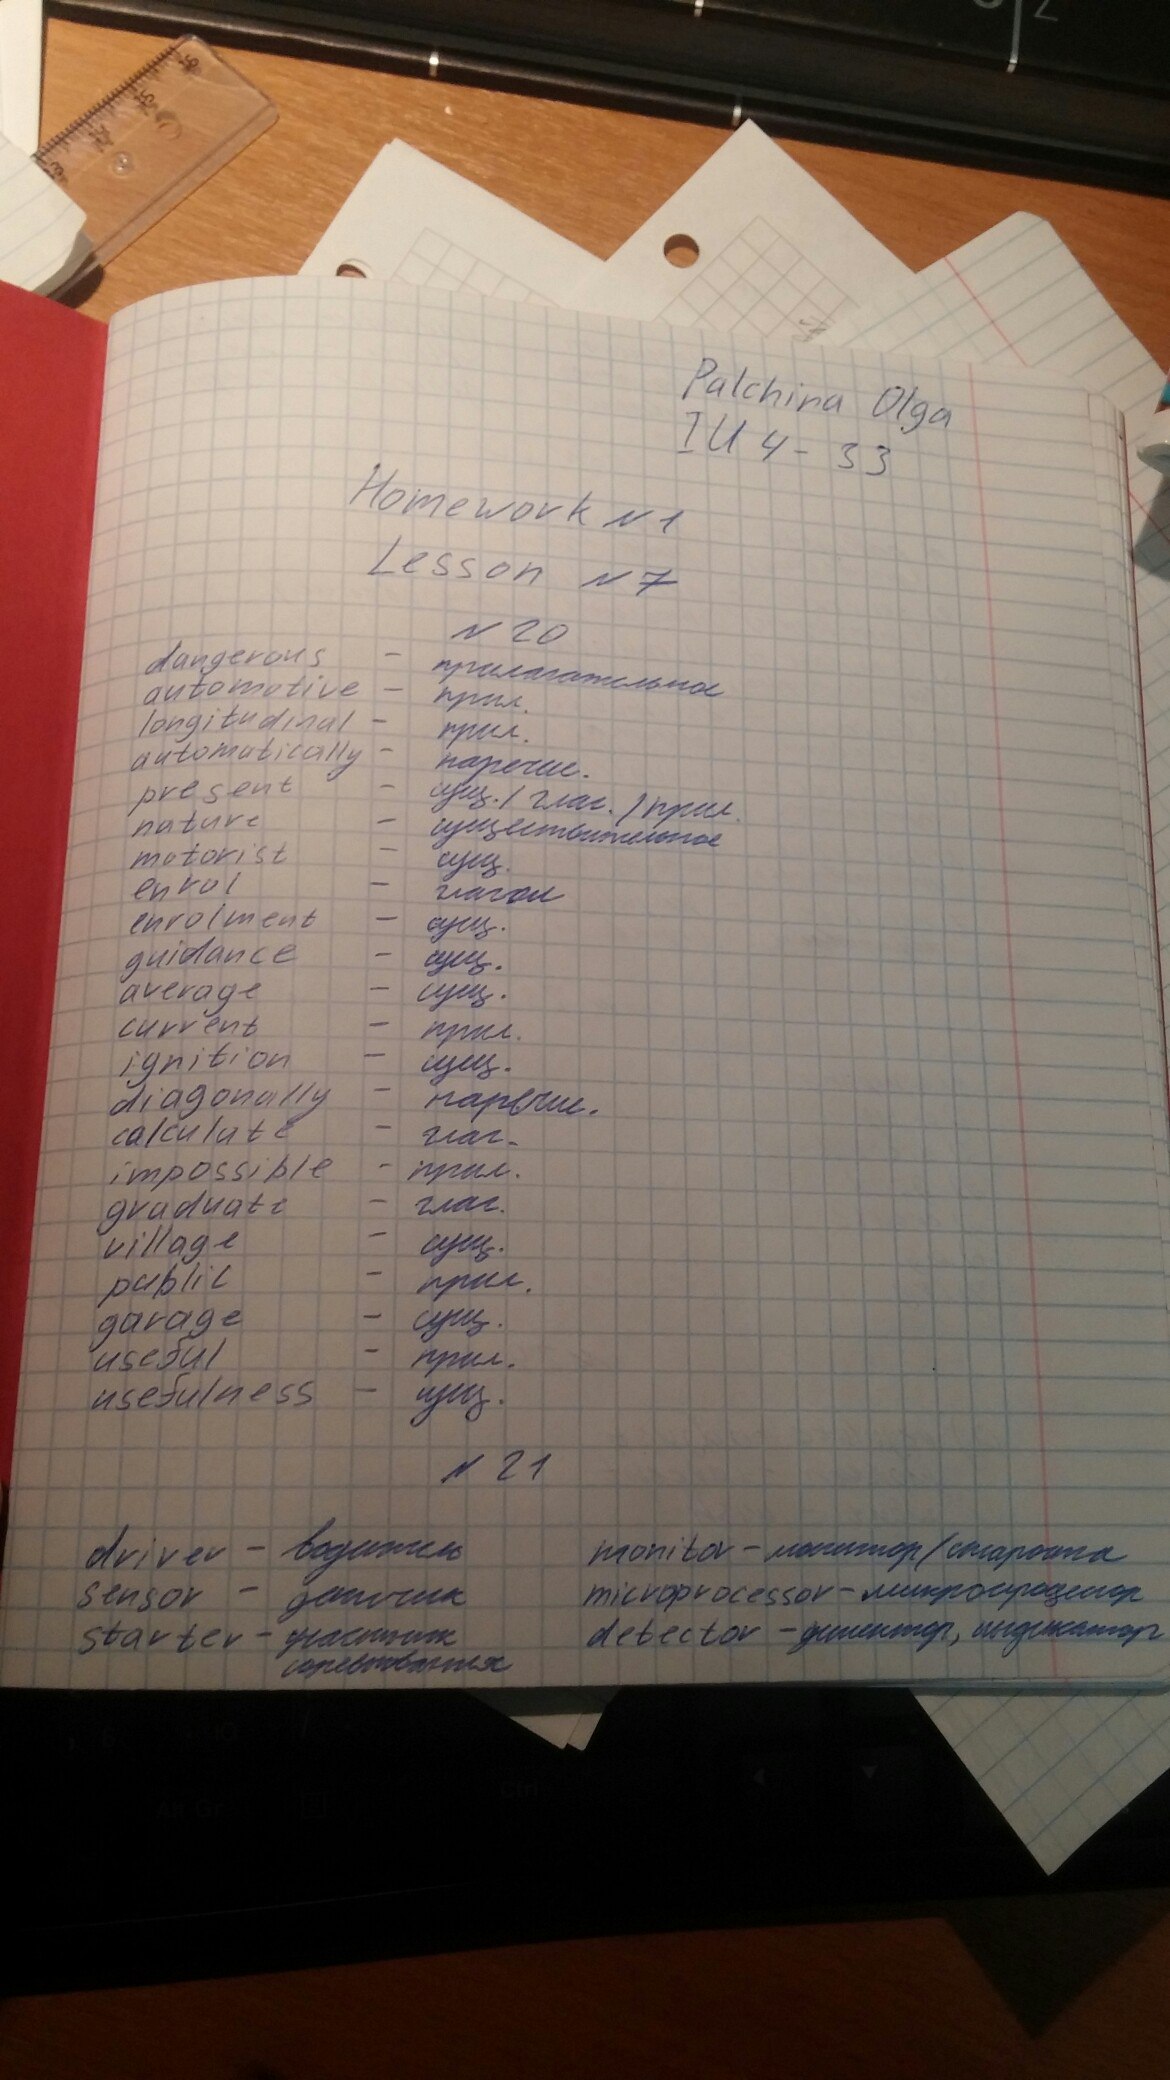 Palchina Olga
IU 4-33
Homework N1
Lesson N7
N20
dangerous - прилагательное
automotive - прил.
longitudinal - прил.
automatically - наречие.
present - сущ./глаг./прил.
nature - существительное
motorist - сущ.
enrol - глагол
enrolment - сущ.
guidance - сущ.
average - сущ.
current - прил.
ignition - сущ.
diagonally - наречие.
calculate - глаг.
impossible - прил.
graduate - глаг.
village - сущ.
public - прил.
garage - сущ.
useful - прил.
usefulness - сущ.
N21
driver - водитель
sensor - датчик
starter - участник
соревнования
monitor - монитор/староста
microprocessor - микропроцессор
detector - детектор, индикатор